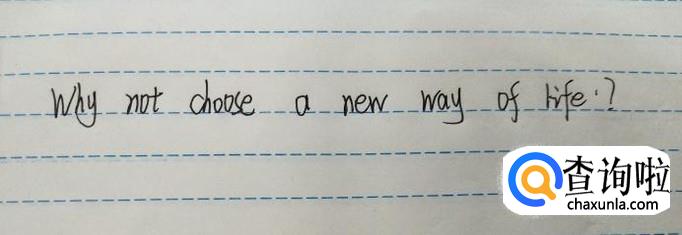 Why not choose a new way of life?
查询啦
chaxunla.com